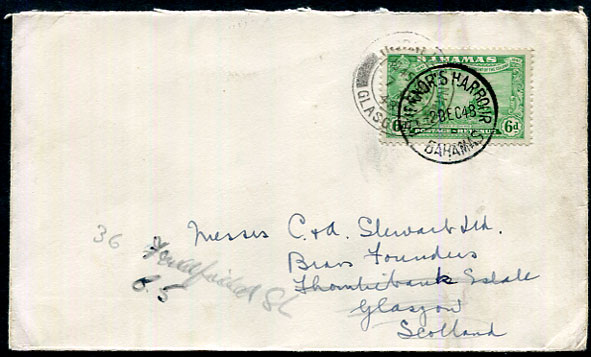 BAHAMAS
GOVERNOR'S HARBOUR
2 DEC 48
BAHAMAS
GLASGO
6d
POSTAGE & REVENUE
6d
Messrs C. & A. Stewart Ltd.
Brass Founders
Thornliebank Estate
Glasgow
Scotland
36
St
C.5